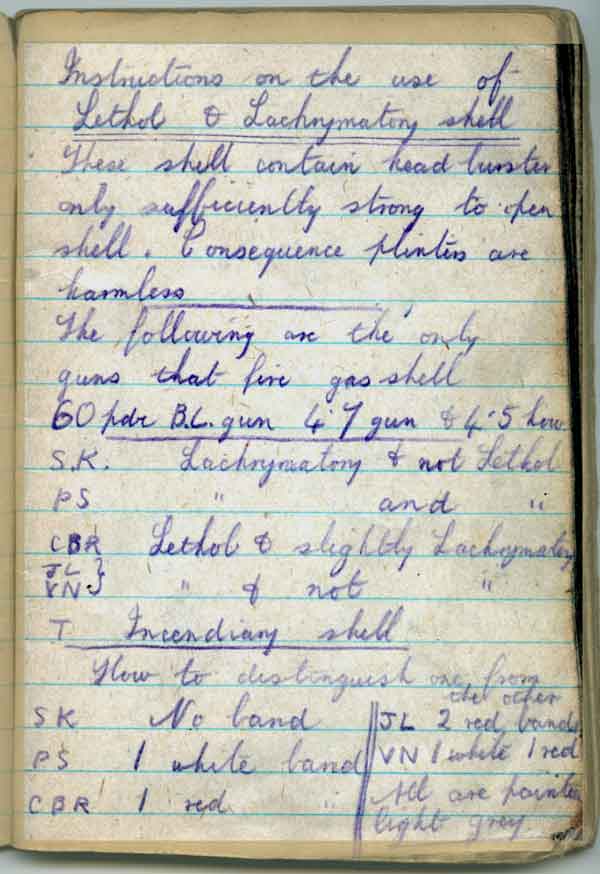 Instructions on the use of
Lethol & Lachrymatory shell
These shell contain head burster
only sufficiently strong to open
shell. Consequence plinters are
harmless
The following are the only
guns that fire gas shell
60 pdr B.L. gun 4.7 gun & 4.5 how
S.K. Lachrymatory & not Lethol
PS " and "
CBR Lethol & slightly Lachrymatory
JL }
VN } " & not "
T Incendiary shell
How to distinguish one from
the other
SK No band
PS 1 white band
CBR 1 red "
JL 2 red bands
VN 1 white 1 red
All are painted
light grey